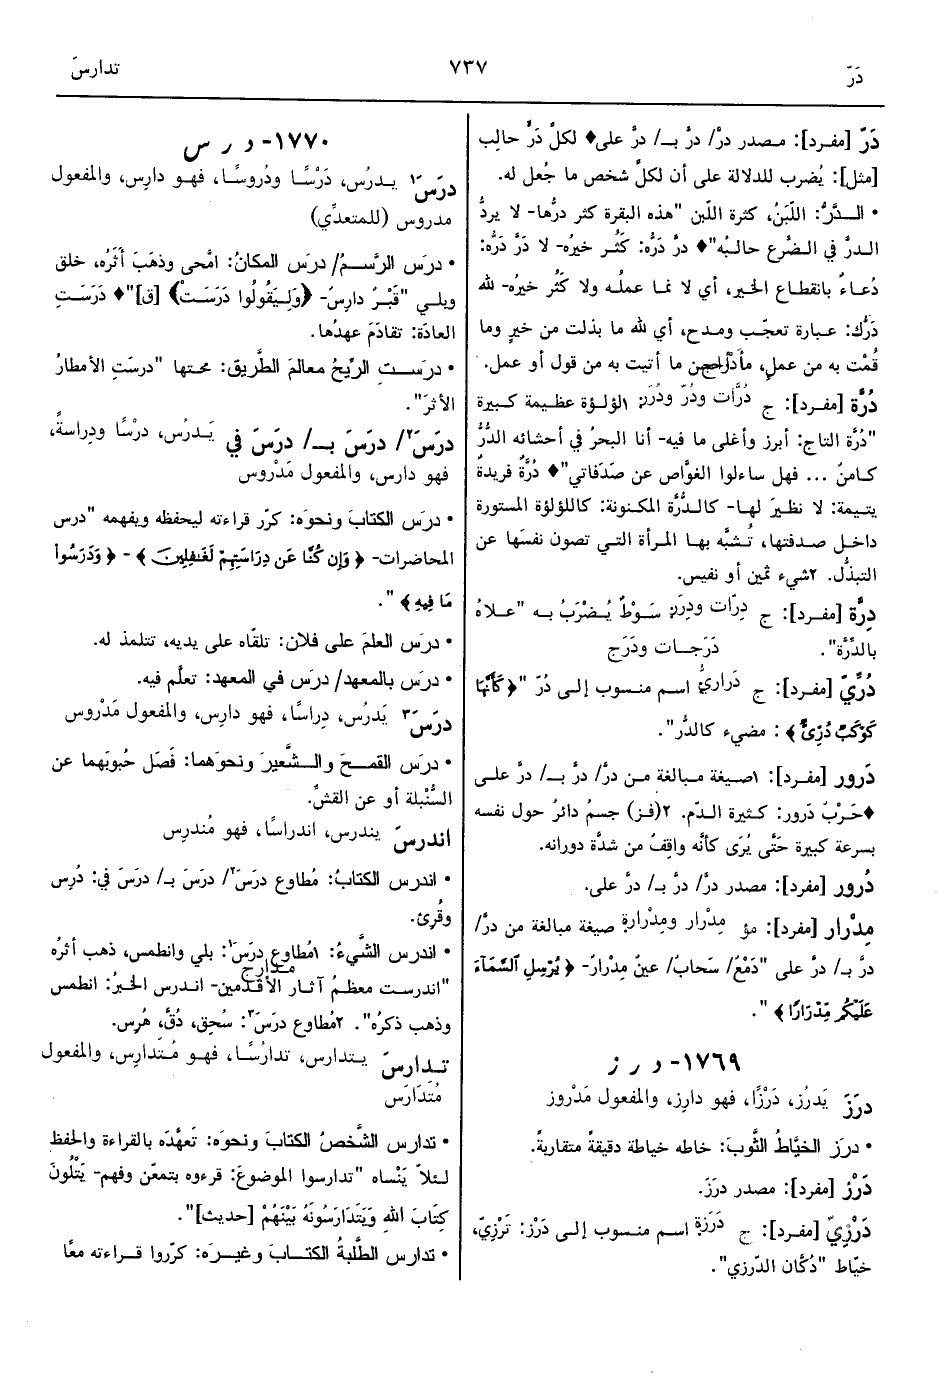 دَرّ
٧٣٧
تدارسَ
دَرّ [مفرد]: مصدر درَّ/ درَّ بـ/ درَّ على♦ لكلِّ دَرٍّ حالِب
[مثل]: يُضرب للدلالة على أن لكلّ شخص ما جُعل له.
• الدَّرُّ: اللَّبَنُ، كثرة اللبن "هذه البقرة كثر درُّها- لا يردُّ
الدرَّ في الضَّرع حالبُه"♦ درَّ دَرُّه: كَثُر خيرُه- لا دَرَّ دَرُّه:
دُعاءٌ بانقطاع الخير، أي لا نما عملُه ولا كثُر خيرُه- لله
دَرُّك: عبارة تعجّب ومدح، أي لله ما بذلت من خيرٍ وما
قُمْت به من عملٍ، ما أتيت به من قول أو عمل.
دُرَّة [مفرد]: ج دُرَّات ودُرّ ودُرَر: ١لؤلؤة عظيمة كبيرة
"دُرَّة التاج: أبرز وأغلى ما فيه- أنا البحرُ في أحشائه الدُّرُّ
كامنٌ ... فهل ساءلوا الغوّاص عن صَدَفاتي"♦ دُرَّةٌ فريدة
يتيمة: لا نظيرَ لها- كالدُّرَّة المكنونة: كاللؤلؤة المستورة
داخل صدفتها، تُشبَّه بها المرأة التي تصون نفسَها عن
التبذُّل. ٢شيء ثمين أو نفيس.
دِرَّة [مفرد]: ج دِرّات ودِرَر: سَوْطٌ يُضْرَبُ به "علاهُ
بالدِّرَّة".
دَرَجات ودَرَج
دُرِّيّ [مفرد]: ج دَراريُّ: اسم منسوب إلى دُرّ "﴿كَأَنَّهَا
كَوْكَبٌ دُرِّيٌّ﴾: مضيء كالدُّر".
دَرور [مفرد]: ١صيغة مبالغة من درَّ/ درَّ بـ/ درَّ على
♦حَرْبٌ دَرور: كثيرة الدّم. ٢(فز) جسمٌ دائرٌ حول نفسه
بسرعة كبيرة حَتَّى يُرَى كأنّه واقِفٌ من شدّة دورانه.
دُرور [مفرد]: مصدر درَّ/ درَّ بـ/ درَّ على.
مِدْرار [مفرد]: مؤ مِدْرار ومِدْرارة: صيغة مبالغة من درَّ/
درَّ بـ/ درَّ على "دَمْعٌ/ سَحابٌ/ عينٌ مِدْرارٌ- ﴿يُرْسِلِ السَّمَآءَ
عَلَيْكُم مِّدْرَارًا﴾".
١٧٦٩- د ر ز
درَزَ يَدرُز، دَرْزًا، فهو دارِز، والمفعول مَدْروز
• درَز الخيَّاطُ الثَّوبَ: خاطه خياطة دقيقةً متقاربةً.
دَرْز [مفرد]: مصدر درَزَ.
دَرْزيّ [مفرد]: ج دَرَزة: اسم منسوب إلى دَرْز: تَرْزِيّ،
خيّاط "دُكّان الدّرزي".
١٧٧٠- د ر س
درَسَ١ يدرُس، دَرْسًا ودُروسًا، فهو دارِس، والمفعول
مدروس (للمتعدِّي)
• درَس الرَّسمُ/ درَس المكانُ: امّحى وذهَبَ أثَرُه، خلق
وبلي "قَبْرٌ دارِسٌ- ﴿وَلِيَقُولُوا دَرَسَتْ﴾ [ق]"♦ دَرَسَتِ
العادَة: تقادَمَ عهدُها.
• درَستِ الرِّيحُ معالمَ الطَّريق: محتها "درسَتِ الأمطارُ
الأثرَ".
درَسَ٢/ درَسَ بـ/ درَسَ في يَدرُس، درْسًا ودِراسةً،
فهو دارِس، والمفعول مَدْروس
• درَس الكتابَ ونحوَه: كرّر قراءته ليحفظه ويفهمه "درس
المحاضرات- ﴿وَإِن كُنَّا عَن دِرَاسَتِهِمْ لَغَافِلِينَ﴾- ﴿وَدَرَسُوا۟
مَا فِيهِ﴾".
• درَس العلمَ على فلان: تلقّاه على يديه، تتلمذ له.
• درَس بالمعهد/ درَس في المعهد: تعلّم فيه.
درَسَ٣ يَدرُس، دِراسًا، فهو دارِس، والمفعول مَدْروس
• درَس القمحَ والشَّعيرَ ونحوَهما: فَصَل حُبوبَهما عن
السُّنْبلة أو عن القشّ.
اندرسَ يندرس، اندراسًا، فهو مُندرِس
• اندرس الكتابُ: مُطاوع درَسَ٢/ درَسَ بـ/ درَسَ في: دُرِس
وقُرئ.
• اندرس الشَّيءُ: ١مُطاوع درَسَ١: بلي وانطمس، ذهب أثرُه
مدارج
"اندرست معظمُ آثار الأقدمين- اندرس الخبرُ: انطمس
وذهب ذكرُه". ٢مُطاوع درَسَ٣: سُحِق، دُقَّ، هُرِس.
تدارسَ يتدارس، تدارُسًا، فهو مُتدارِس، والمفعول
مُتَدَارَس
• تدارس الشَّخصُ الكتابَ ونحوَه: تعهَّدَه بالقراءة والحفظ
لئلاّ يَنْساه "تدارسوا الموضوعَ: قرءوه بتمعّن وفهم- يَتْلُونَ
كِتَابَ اللهِ وَيَتَدَارَسُونَهُ بَيْنَهُمْ [حديث]".
• تدارس الطَّلبةُ الكتابَ وغيرَه: كرّروا قراءته معًا